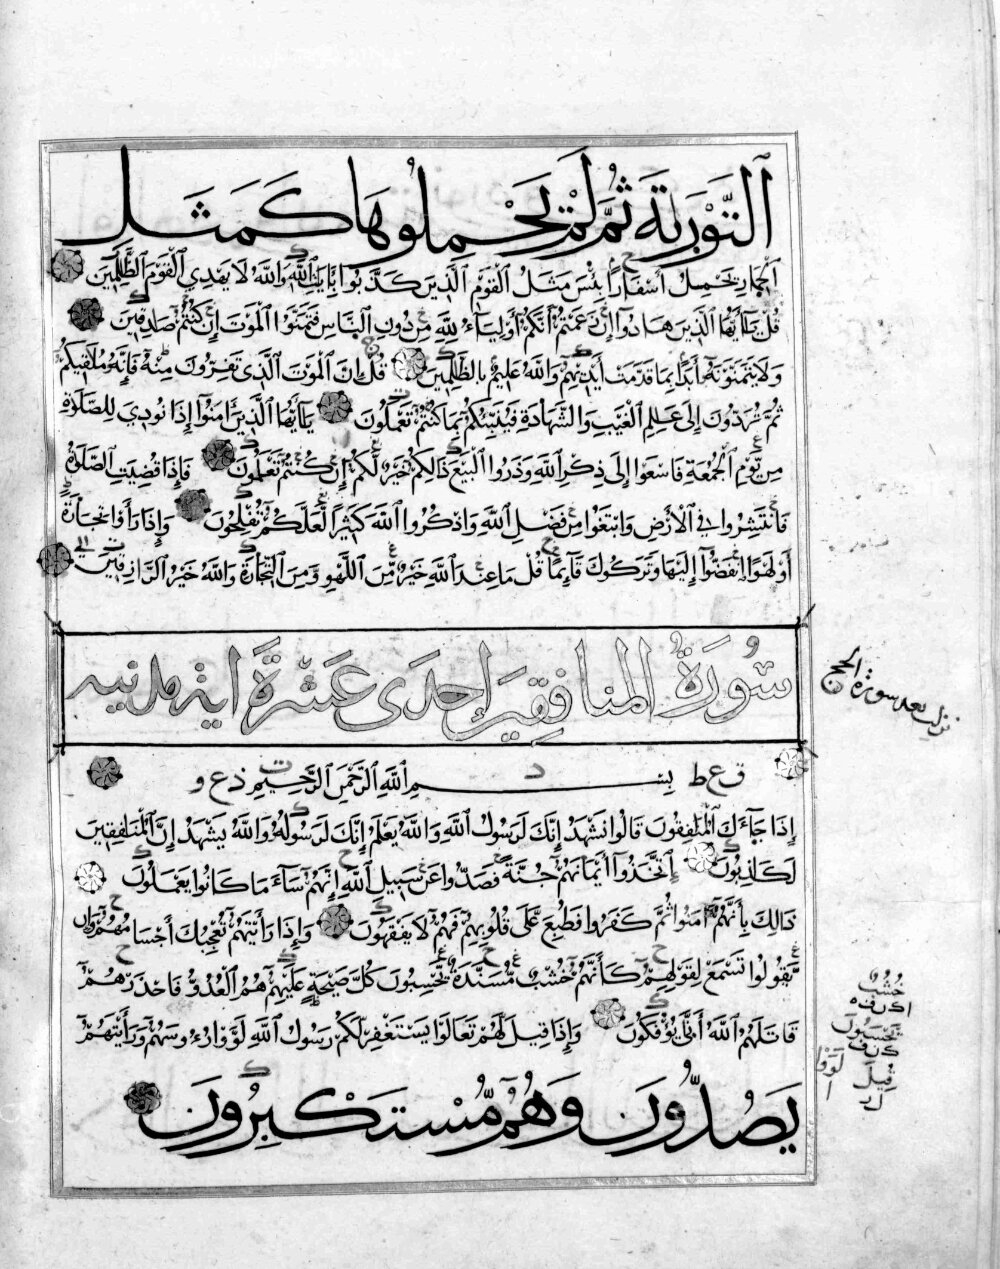 ٱلتَّوْرَىٰةَ ثُمَّ لَمْ يَحْمِلُوهَا كَمَثَلِ
ٱلْحِمَارِ يَحْمِلُ أَسْفَارًا بِئْسَ مَثَلُ ٱلْقَوْمِ ٱلَّذِينَ كَذَّبُوا بِآيَاتِ ٱللَّهِ وَٱللَّهُ لَا يَهْدِي ٱلْقَوْمَ ٱلظَّٰلِمِينَ
قُلْ يَٰٓأَيُّهَا ٱلَّذِينَ هَادُوٓا إِنْ زَعَمْتُمْ أَنَّكُمْ أَوْلِيَآءُ لِلَّهِ مِنْ دُونِ ٱلنَّاسِ فَتَمَنَّوُا ٱلْمَوْتَ إِنْ كُنْتُمْ صَادِقِينَ
وَلَا يَتَمَنَّوْنَهُٓ أَبَدًا بِمَا قَدَّمَتْ أَيْدِيهِمْ وَٱللَّهُ عَلِيمٌ بِالظَّٰلِمِينَ قُلْ إِنَّ ٱلْمَوْتَ ٱلَّذِي تَفِرُّونَ مِنْهُ فَإِنَّهُ مُلَٰقِيكُمْ
ثُمَّ تُرَدُّونَ إِلَى عَٰلِمِ ٱلْغَيْبِ وَالشَّهَادَةِ فَيُنَبِّئُكُمْ بِمَا كُنْتُمْ تَعْمَلُونَ يَٰٓأَيُّهَا ٱلَّذِينَ ءَامَنُوٓا إِذَا نُودِيَ لِلصَّلَوٰةِ
مِنْ يَوْمِ ٱلْجُمُعَةِ فَاسْعَوْا إِلَى ذِكْرِ ٱللَّهِ وَذَرُوا ٱلْبَيْعَ ذَالِكُمْ خَيْرٌ لَّكُمْ إِنْ كُنْتُمْ تَعْلَمُونَ فَإِذَا قُضِيَتِ ٱلصَّلَوٰةُ
فَانْتَشِرُوا فِي ٱلْأَرْضِ وَابْتَغُوا مِنْ فَضْلِ ٱللَّهِ وَاذْكُرُوا ٱللَّهَ كَثِيرًا لَّعَلَّكُمْ تُفْلِحُونَ وَإِذَا رَأَوْا تِجَارَةً
أَوْ لَهْوًا ٱنْفَضُّوٓا إِلَيْهَا وَتَرَكُوكَ قَآئِمًا قُلْ مَا عِنْدَ ٱللَّهِ خَيْرٌ مِّنَ ٱللَّهْوِ وَمِنَ ٱلتِّجَارَةِ وَٱللَّهُ خَيْرُ ٱلرَّازِقِينَ
سُورَةُ المنافقين إحدى عَشْرَةَ اية مدنية
نزلت بعد سورة الحج
ق ع ط بِسْمِ ٱللَّهِ ٱلرَّحْمَٰنِ ٱلرَّحِيمِ ذ ع و
إِذَا جَآءَكَ ٱلْمُنَٰفِقُونَ قَالُوا نَشْهَدُ إِنَّكَ لَرَسُولُ ٱللَّهِ وَٱللَّهُ يَعْلَمُ إِنَّكَ لَرَسُولُهُ وَٱللَّهُ يَشْهَدُ إِنَّ ٱلْمُنَافِقِينَ
لَكَاذِبُونَ ٱتَّخَذُوٓا أَيْمَانَهُمْ جُنَّةً فَصَدُّوا عَنْ سَبِيلِ ٱللَّهِ إِنَّهُمْ سَآءَ مَا كَانُوا يَعْمَلُونَ
ذَالِكَ بِأَنَّهُمْ ءَامَنُوا ثُمَّ كَفَرُوا فَطُبِعَ عَلَى قُلُوبِهِمْ فَهُمْ لَا يَفْقَهُونَ وَإِذَا رَأَيْتَهُمْ تُعْجِبُكَ أَجْسَامُهُمْ وَإِنْ
يَّقُولُوا تَسْمَعْ لِقَوْلِهِمْ كَأَنَّهُمْ خُشُبٌ مُّسَنَّدَةٌ يَحْسِبُونَ كُلَّ صَيْحَةٍ عَلَيْهِمْ هُمُ ٱلْعَدُوُّ فَاحْذَرْهُمْ
قَاتَلَهُمُ ٱللَّهُ أَنَّى يُؤْفَكُونَ وَإِذَا قِيلَ لَهُمْ تَعَالَوْا يَسْتَغْفِرْ لَكُمْ رَسُولُ ٱللَّهِ لَوَّوْا رُءُوسَهُمْ وَرَأَيْتَهُمْ
يَصُدُّونَ وَهُمْ مُّسْتَكْبِرُونَ
خُشُبٌ
يَحْسَبُونَ
قِيلَ
لَوَوْا